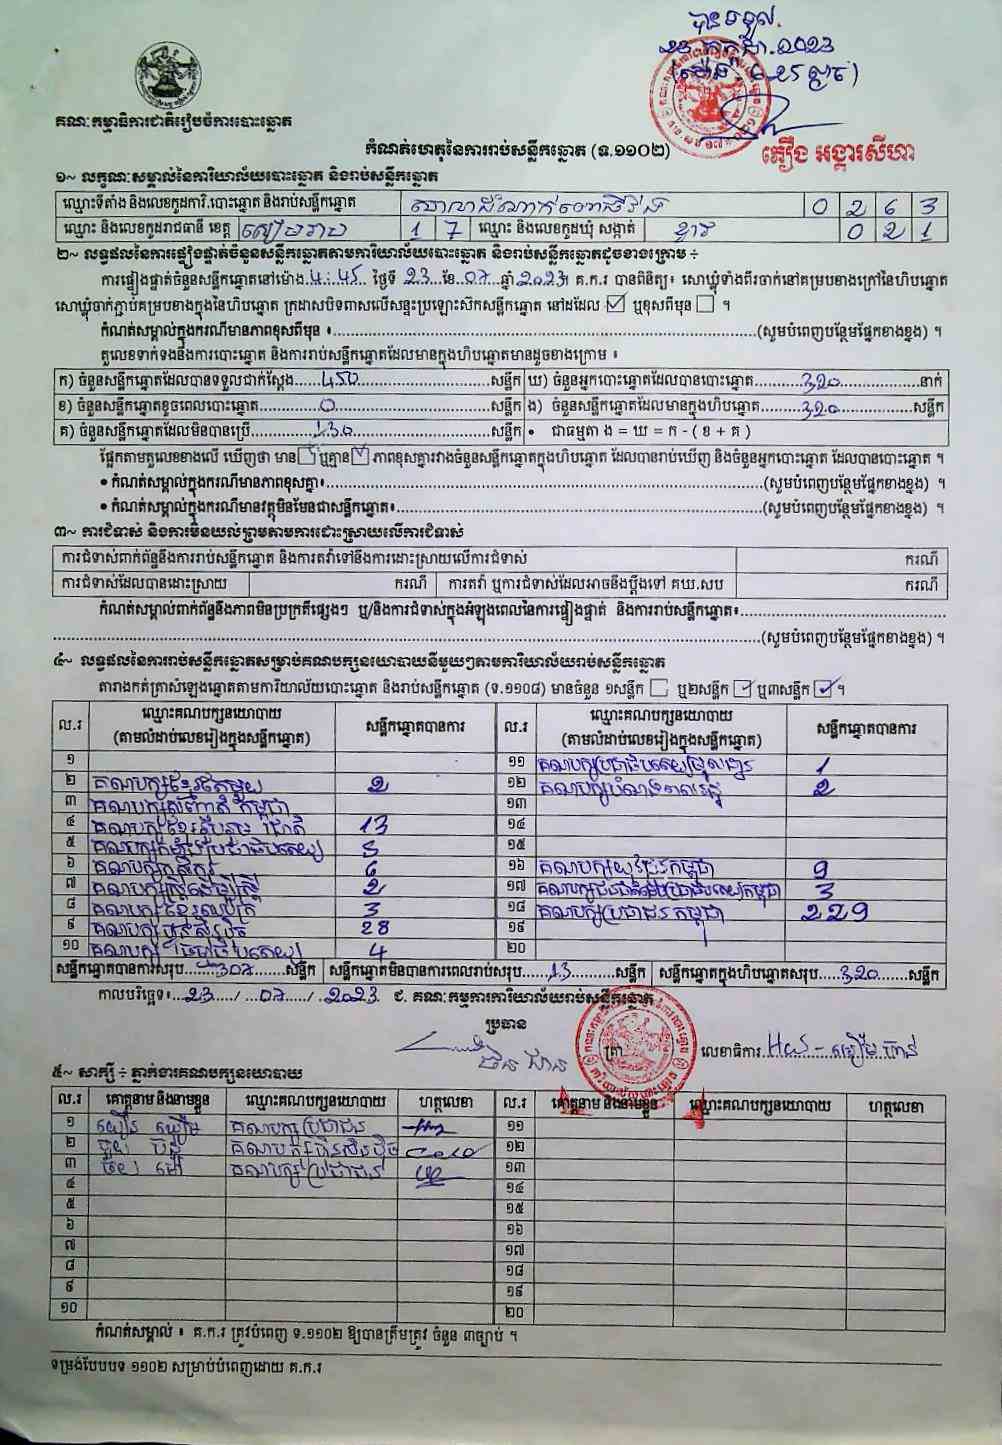 បានទទួល.
២៣ កក្កដា. ២០២៣
ភឿង អង្គារសីហា
គណៈកម្មាធិការជាតិរៀបចំការបោះឆ្នោត
កំណត់ហេតុនៃការរាប់សន្លឹកឆ្នោត (ទ.១១០២)
១~ លក្ខណៈសម្គាល់នៃការិយាល័យបោះឆ្នោត និងរាប់សន្លឹកឆ្នោត
ឈ្មោះទីតាំង និងលេខកូដការិ.បោះឆ្នោត និងរាប់សន្លឹកឆ្នោត 0 2 6 3
ឈ្មោះ និងលេខកូដរាជធានី ខេត្ត សៀមរាប 1 7 ឈ្មោះ និងលេខកូដឃុំ សង្កាត់ 0 2 1
២~ លទ្ធផលនៃការផ្ទៀងផ្ទាត់ចំនួនសន្លឹកឆ្នោតតាមការិយាល័យបោះឆ្នោត និងរាប់សន្លឹកឆ្នោតដូចខាងក្រោម ÷
ការផ្ទៀងផ្ទាត់ចំនួនសន្លឹកឆ្នោតនៅម៉ោង 4:45 ថ្ងៃទី 23 ខែ 07 ឆ្នាំ 2023។ គ.ក.រ បានពិនិត្យ៖ សោឃ្លុំទាំងពីរចាក់នៅគម្របខាងក្រៅនៃហិបឆ្នោត
សោឃ្លុំចាក់ភ្ជាប់គម្របខាងក្នុងនៃហិបឆ្នោត ក្រដាសបិទពាសលើសន្ទះប្រឡោះស៊កសន្លឹកឆ្នោត នៅដដែល ☑ ឬខុសពីមុន ☐ ។
កំណត់សម្គាល់ក្នុងករណីមានភាពខុសពីមុន ៖ (សូមបំពេញបន្ថែមផ្នែកខាងខ្នង) ។
តួលេខទាក់ទងនឹងការបោះឆ្នោត និងការរាប់សន្លឹកឆ្នោតដែលមានក្នុងហិបឆ្នោតមានដូចខាងក្រោម ៖
ក) ចំនួនសន្លឹកឆ្នោតដែលបានទទួលជាក់ស្តែង 450 សន្លឹក ឃ) ចំនួនអ្នកបោះឆ្នោតដែលបានបោះឆ្នោត 320 នាក់
ខ) ចំនួនសន្លឹកឆ្នោតខូចពេលបោះឆ្នោត 0 សន្លឹក ង) ចំនួនសន្លឹកឆ្នោតដែលមានក្នុងហិបឆ្នោត 320 សន្លឹក
គ) ចំនួនសន្លឹកឆ្នោតដែលមិនបានប្រើ 130 សន្លឹក • ជាធម្មតា ង = ឃ = ក - ( ខ + គ )
ផ្អែកតាមតួលេខខាងលើ ឃើញថា មាន ឬគ្មាន ភាពខុសគ្នារវាងចំនួនសន្លឹកឆ្នោតក្នុងហិបឆ្នោត ដែលបានរាប់ឃើញ និងចំនួនអ្នកបោះឆ្នោត ដែលបានបោះឆ្នោត ។
• កំណត់សម្គាល់ក្នុងករណីមានភាពខុសគ្នា៖ (សូមបំពេញបន្ថែមផ្នែកខាងខ្នង) ។
• កំណត់សម្គាល់ក្នុងករណីមានវត្ថុមិនមែនជាសន្លឹកឆ្នោត៖ (សូមបំពេញបន្ថែមផ្នែកខាងខ្នង) ។
៣~ ការជំទាស់ និងការមិនយល់ព្រមតាមការដោះស្រាយលើការជំទាស់
ការជំទាស់ពាក់ព័ន្ធនឹងការរាប់សន្លឹកឆ្នោត និងការតវ៉ាទៅនឹងការដោះស្រាយលើការជំទាស់ ករណី
ការជំទាស់ដែលបានដោះស្រាយ ករណី ការតវ៉ា ឬការជំទាស់ដែលអាចនឹងប្តឹងទៅ គឃ.សប ករណី
កំណត់សម្គាល់ពាក់ព័ន្ធនឹងភាពមិនប្រក្រតីផ្សេងៗ ឬ/និងការជំទាស់ក្នុងអំឡុងពេលនៃការផ្ទៀងផ្ទាត់ និងការរាប់សន្លឹកឆ្នោត៖
(សូមបំពេញបន្ថែមផ្នែកខាងខ្នង) ។
៤~ លទ្ធផលនៃការរាប់សន្លឹកឆ្នោតសម្រាប់គណបក្សនយោបាយនីមួយៗតាមការិយាល័យរាប់សន្លឹកឆ្នោត
តារាងកត់ត្រាសំឡេងឆ្នោតតាមការិយាល័យបោះឆ្នោត និងរាប់សន្លឹកឆ្នោត (ទ.១១០៨) មានចំនួន ១សន្លឹក ☐ ឬ២សន្លឹក ☑ ឬ៣សន្លឹក ☑ ។
ល.រ ឈ្មោះគណបក្សនយោបាយ (តាមលំដាប់លេខរៀងក្នុងសន្លឹកឆ្នោត) សន្លឹកឆ្នោតបានការ ល.រ ឈ្មោះគណបក្សនយោបាយ (តាមលំដាប់លេខរៀងក្នុងសន្លឹកឆ្នោត) សន្លឹកឆ្នោតបានការ
១ ១១ គណបក្សប្រជាធិបតេយ្យមូលដ្ឋាន 1
២ គណបក្សខ្មែរតែមួយ 2 ១២ 2
៣ គណបក្សសញ្ជាតិកម្ពុជា ១៣
៤ 13 ១៤
៥ គណបក្សកម្លាំងប្រជាធិបតេយ្យ 5 ១៥
៦ គណបក្សកសិករ 6 ១៦ គណបក្សយុវជនកម្ពុជា 9
៧ គណបក្សស្ត្រីដើម្បីស្ត្រី 2 ១៧ 3
៨ គណបក្សខ្មែរអភិរក្ស 3 ១៨ គណបក្សប្រជាជនកម្ពុជា 229
៩ គណបក្សហ៊្វុនស៊ិនប៉ិច 28 ១៩
១០ 4 ២០
សន្លឹកឆ្នោតបានការសរុប 307 សន្លឹក សន្លឹកឆ្នោតមិនបានការពេលរាប់សរុប 13 សន្លឹក សន្លឹកឆ្នោតក្នុងហិបឆ្នោតសរុប 320 សន្លឹក
កាលបរិច្ឆេទ៖ 23 / 07 / 2023 ជ. គណៈកម្មការការិយាល័យរាប់សន្លឹកឆ្នោត
ប្រធាន
ត្រា លេខាធិការ
៥~ សាក្សី ÷ ភ្នាក់ងារគណបក្សនយោបាយ
ល.រ គោត្តនាម និងនាមខ្លួន ឈ្មោះគណបក្សនយោបាយ ហត្ថលេខា ល.រ គោត្តនាម និងនាមខ្លួន ឈ្មោះគណបក្សនយោបាយ ហត្ថលេខា
១ គណបក្សប្រជាជន ១១
២ គណបក្សហ៊្វុនស៊ិនប៉ិច ១២
៣ គណបក្សប្រជាជន ១៣
៤ ១៤
៥ ១៥
៦ ១៦
៧ ១៧
៨ ១៨
៩ ១៩
១០ ២០
កំណត់សម្គាល់ ៖ គ.ក.រ ត្រូវបំពេញ ទ.១១០២ ឱ្យបានត្រឹមត្រូវ ចំនួន ៣ច្បាប់ ។
ទម្រង់បែបបទ ១១០២ សម្រាប់បំពេញដោយ គ.ក.រ